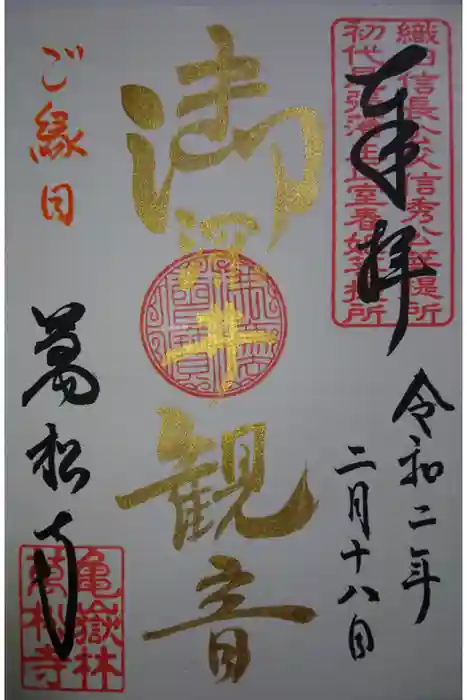 奉拝
織田信長公父信秀公菩提所
初代尾張藩主正室春姫菩提所
令和二年
二月十八日
御深井観音
ご縁日
萬松寺
亀嶽林
萬松寺